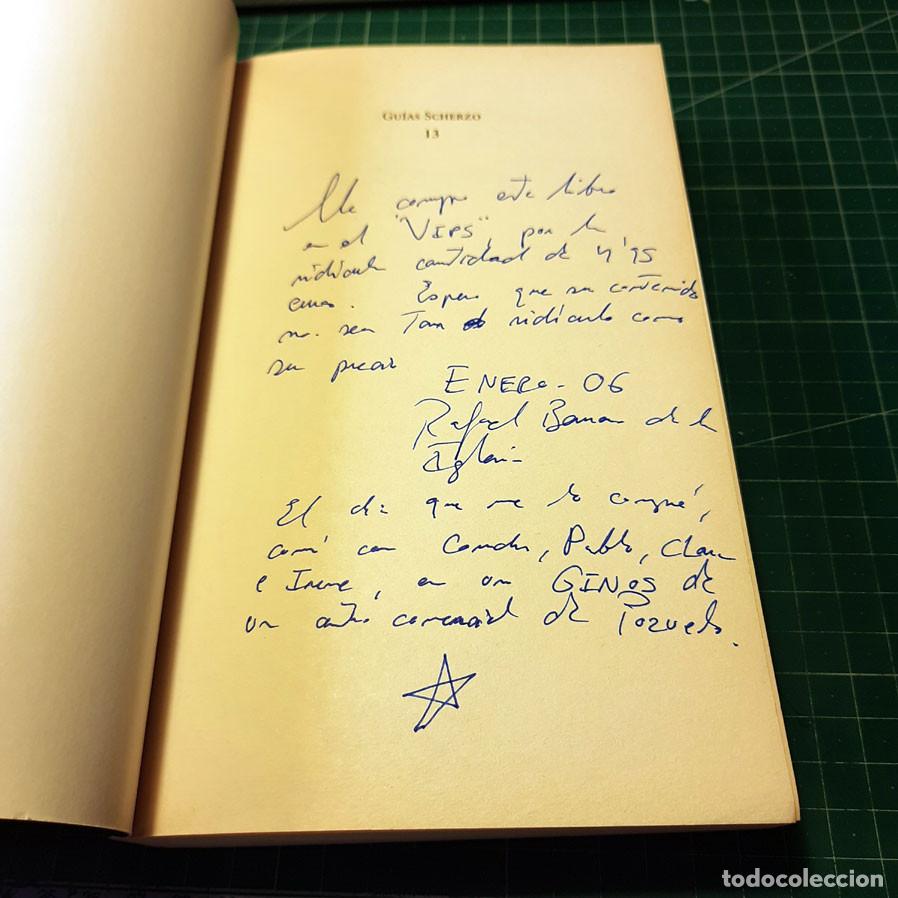 GUÍAS SCHERZO
13
Me compré este libro
en el "VIPS", por la
ridícula cantidad de 4'95
euros. Espero que su contenido
no sea Tan ridículo como
su precio
ENERO - 06
Rafael de la
Iglesia
El día que me lo compré,
comí con Concha, Pablo, Clara
e Irene, en un GINOS de
un centro comercial de Pozuelo.
todocoleccion